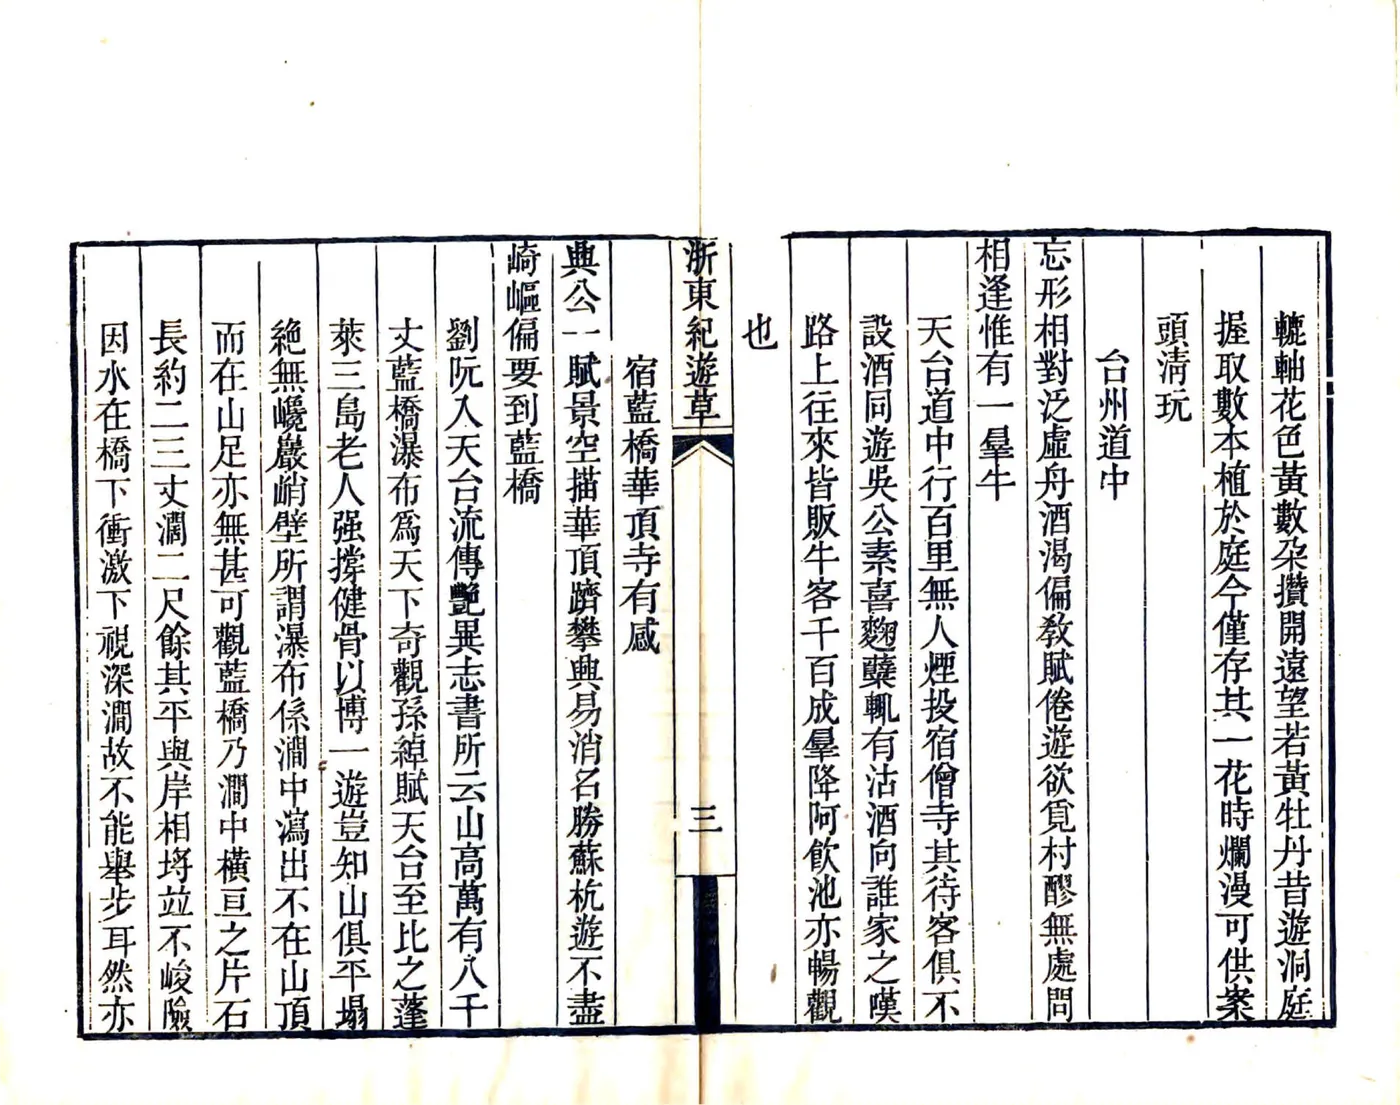 轆軸花色黃數朶攢開遠望若黃牡丹昔遊洞庭
握取數本植於庭今僅存其一花時爛漫可供案
頭淸玩
台州道中
忘形相對泛虛舟酒渴偏教賦倦遊欲覓村醪無處問
相逢惟有一羣牛
天台道中行百里無人煙投宿僧寺其待客俱不
設酒同遊吳公素喜麴蘗輒有沽酒向誰家之嘆
路上往來皆販牛客千百成羣降阿飮池亦暢觀
也
浙東紀遊草
三
宿藍橋華頂寺有感
興公一賦景空描華頂躋攀興易消名勝蘇杭遊不盡
崎嶇偏要到藍橋
劉阮入天台流傳艷異志書所云山高萬有八千
丈藍橋瀑布爲天下奇觀孫綽賦天台至比之蓬
萊三島老人强撐健骨以博一遊豈知山俱平塌
絶無巉巖峭壁所謂瀑布係澗中瀉出不在山頂
而在山足亦無甚可觀藍橋乃澗中橫亘之片石
長約二三丈濶二尺餘其平與岸相埓並不峻險
因水在橋下衝激下視深澗故不能舉步耳然亦